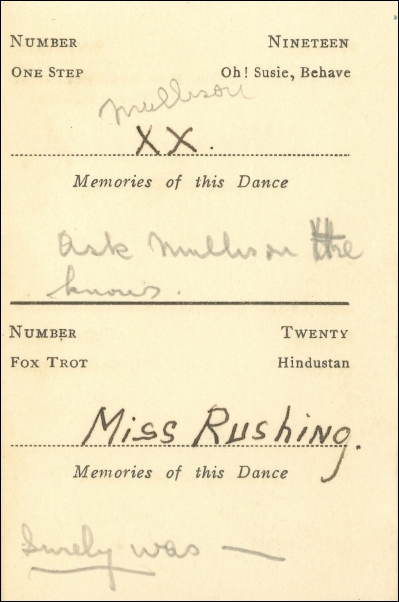 NUMBER NINETEEN
ONE STEP Oh! Susie, Behave
Mullison
XX.
Memories of this Dance
Ask Mullison He
knows.
NUMBER TWENTY
FOX TROT Hindustan
Miss Rushing.
Memories of this Dance
Surely was —